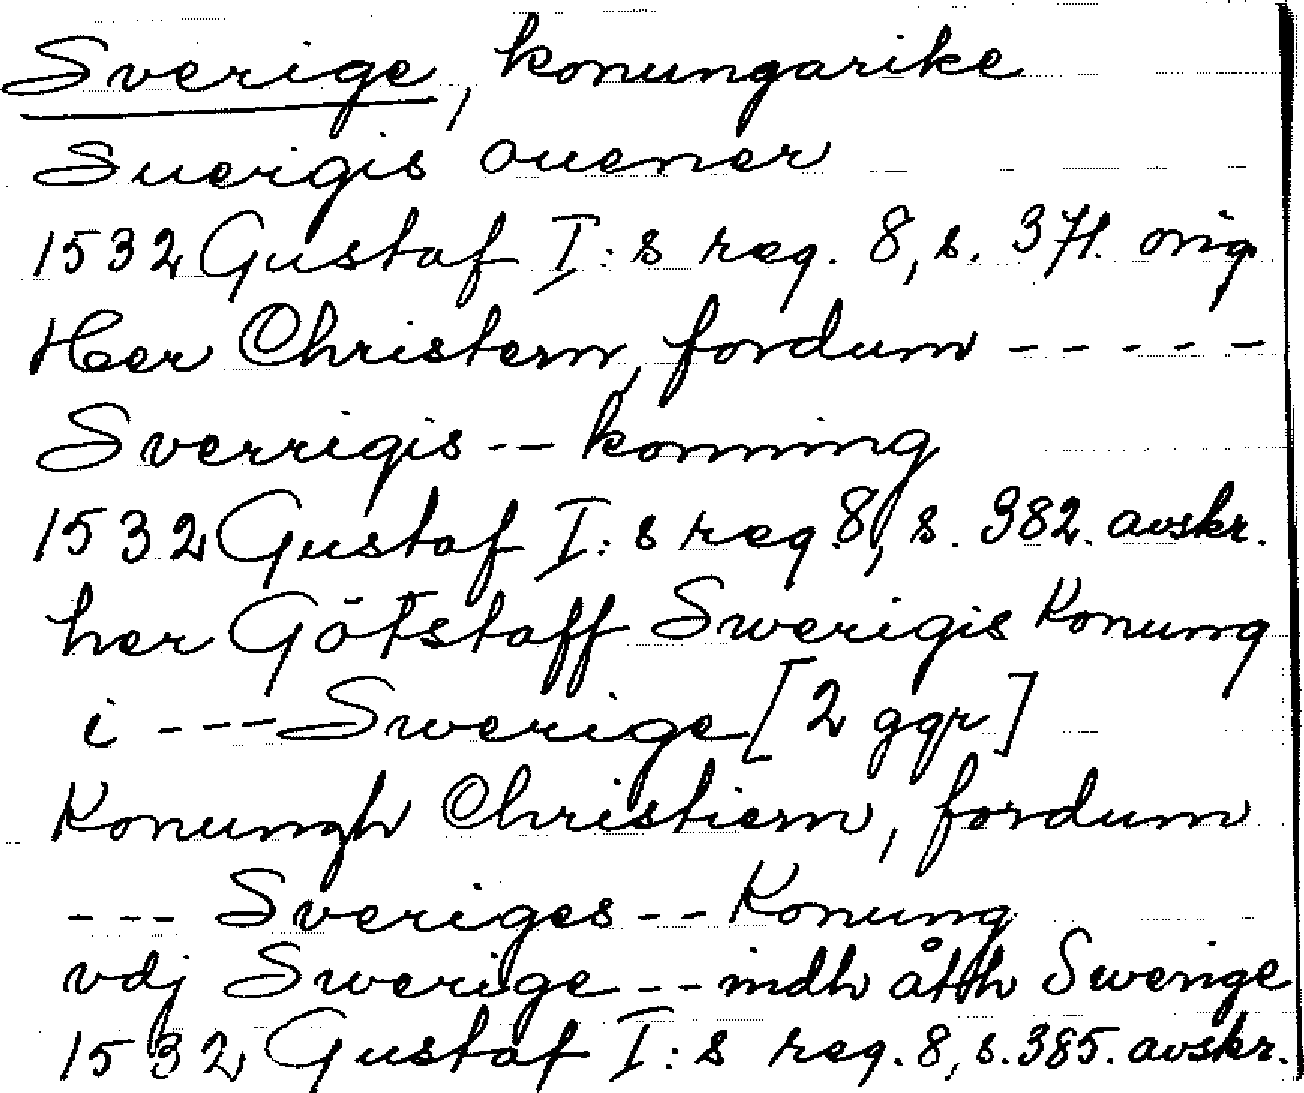 Sverige, konungarike
Suerigis ouener
1532 Gustaf I:s reg. 8, s. 371. orig
Her Christern, fordum - - - - -
Sverrigis -- konning
1532 Gustaf I:s reg. 8, s. 382. avskr.
her Götstaff Swerigis Konung
i --- Swerige [2 ggr]
Konungh Christiern, fordum
--- Sveriges -- Konung
vdj Swerige -- indh åth Swerige
1532 Gustaf I:s reg. 8, s. 385. avskr.